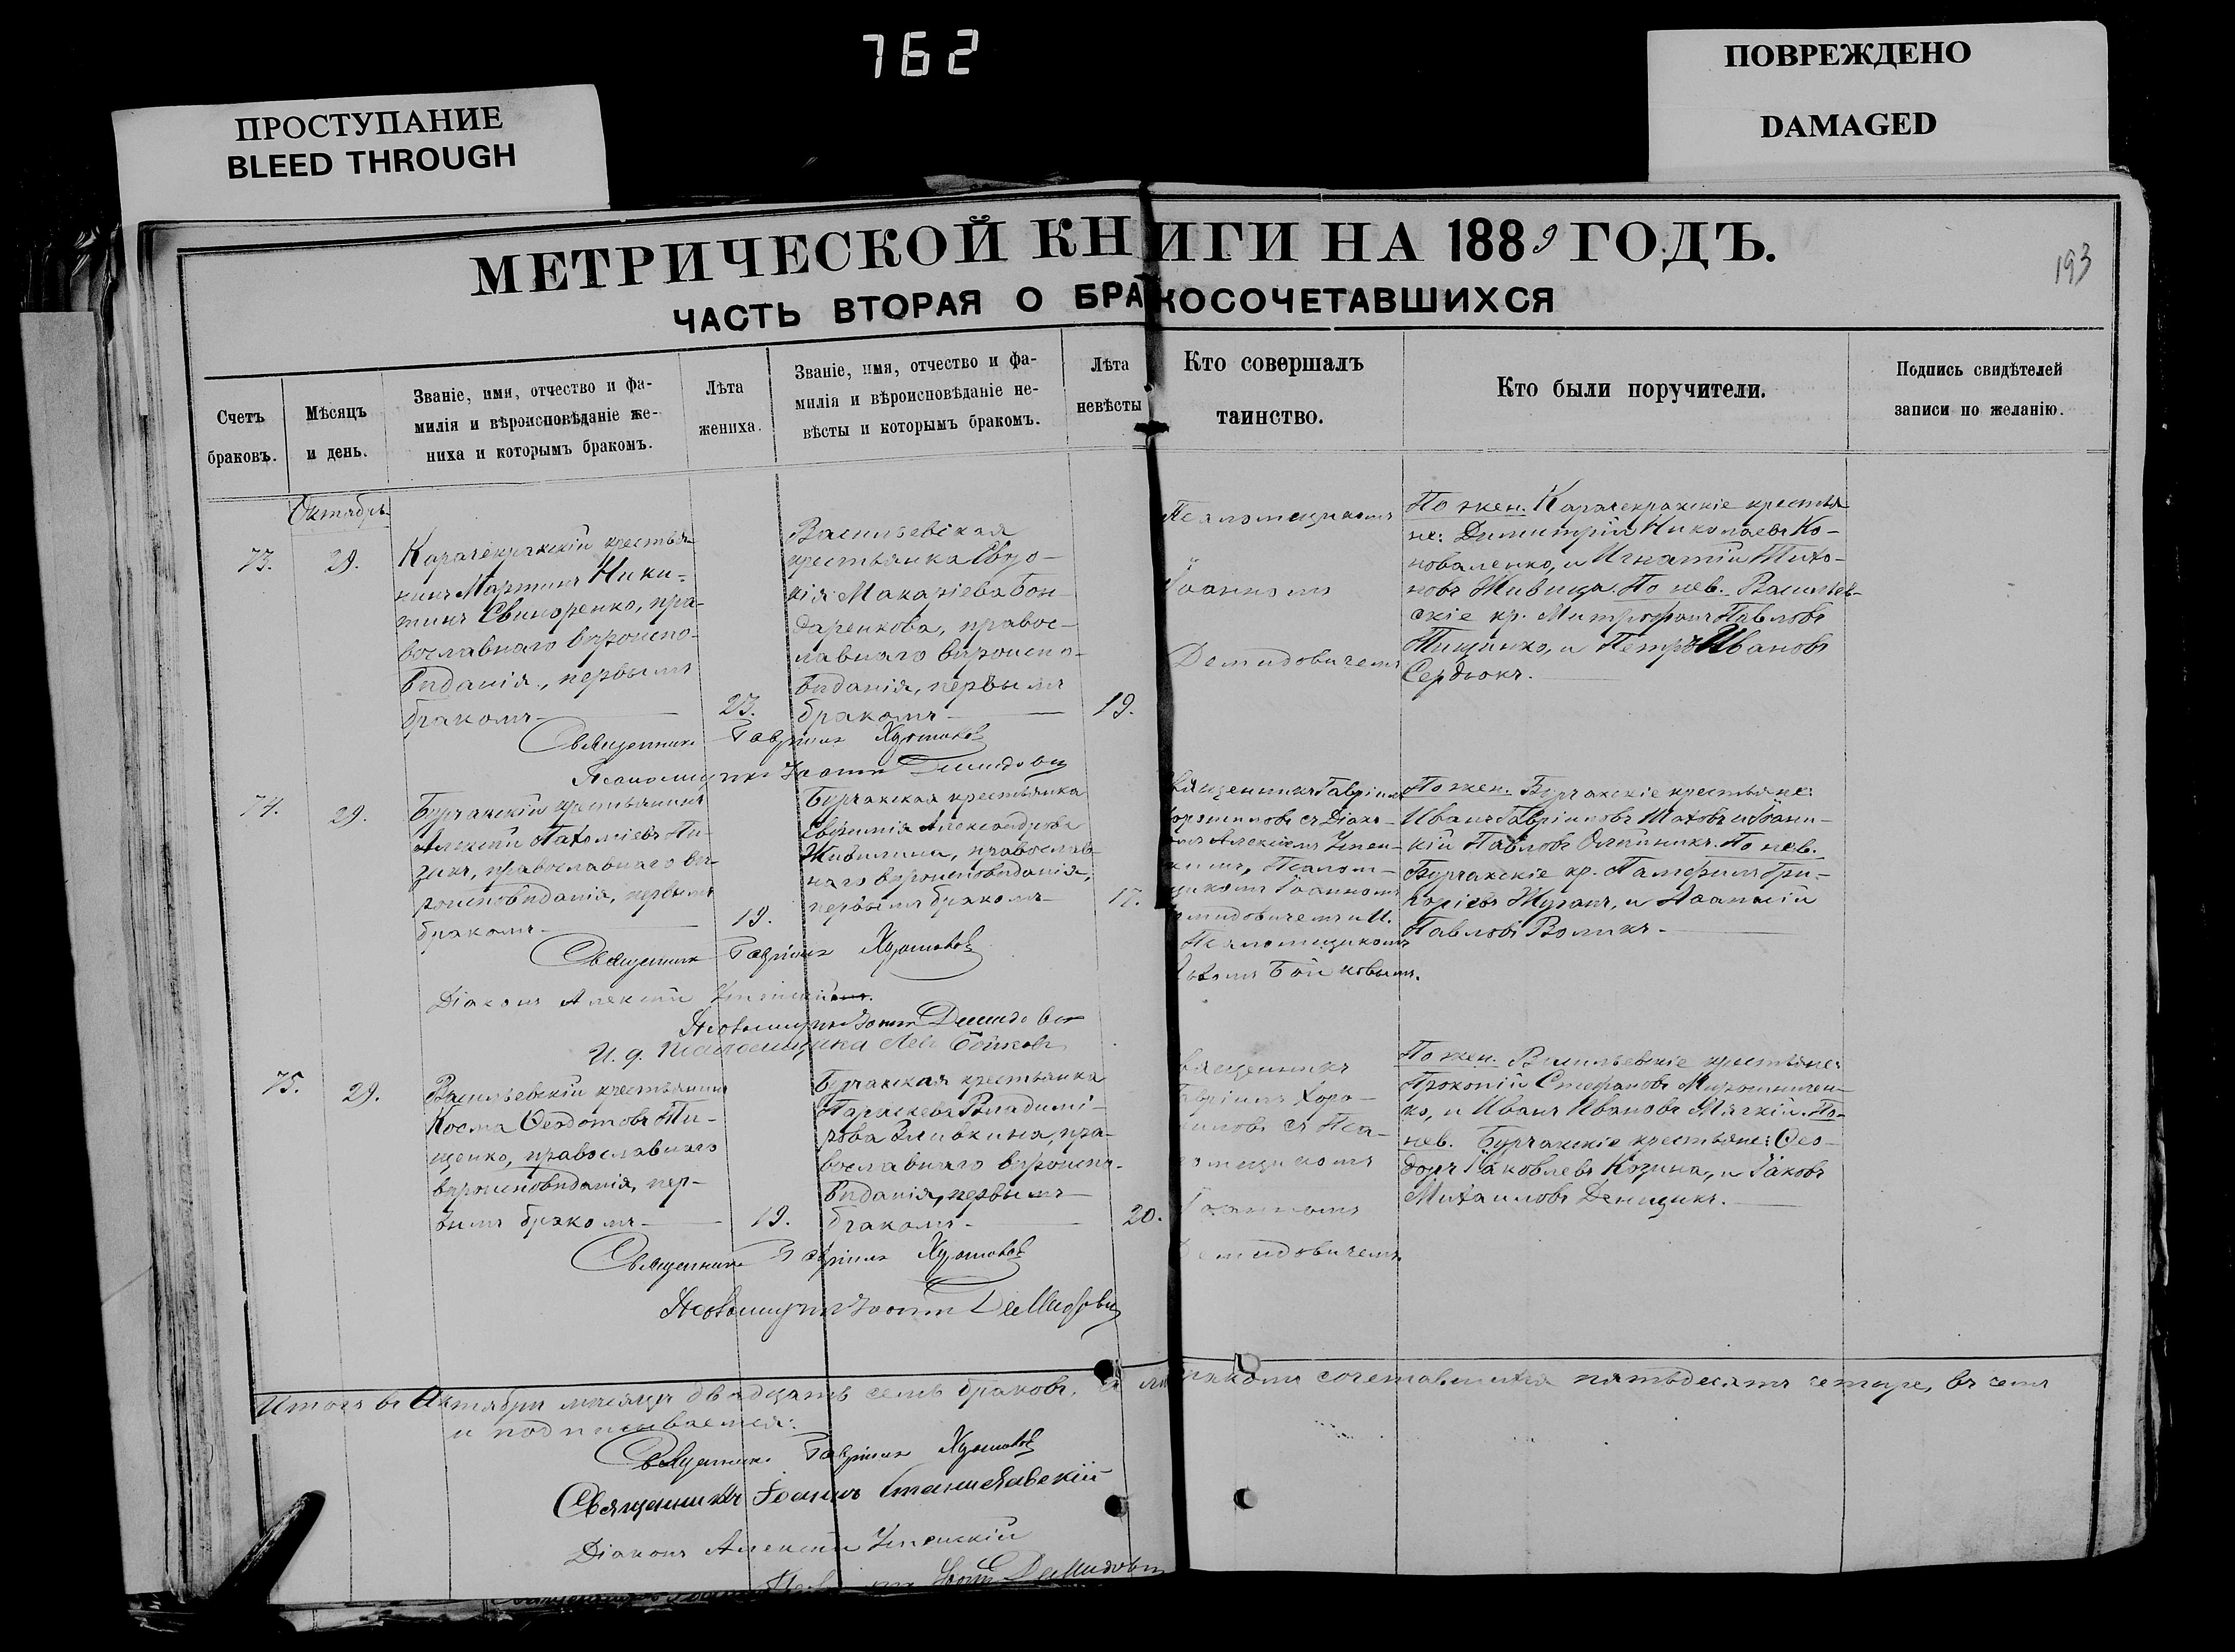 762
ПРОСТУПАНИЕ
BLEED THROUGH
ПОВРЕЖДЕНО
DAMAGED
МЕТРИЧЕСКОЙ КНИГИ НА 1889 ГОДЪ.
193
ЧАСТЬ ВТОРАЯ О БРАКОСОЧЕТАВШИХСЯ
Счетъ
браковъ.
Мѣсяцъ
и день.
Званіе, имя, отчество и фа-
милія и вѣроисповѣданіе же-
ниха и которымъ бракомъ.
Лѣта
жениха.
Званіе, имя, отчество и фа-
милія и вѣроисповѣданіе не-
вѣсты и которымъ бракомъ.
Лѣта
невѣсты
Кто совершалъ
таинство.
Кто были поручители.
Подпись свидѣтелей
записи по желанію.
Октябрь
73.
29.
Карачекракскій крестья-
нинъ Мартинъ Ники-
тинъ Свинаренко, пра-
вославнаго вѣроиспо-
вѣданія, первымъ
бракомъ
23.
Васильевская
крестьянка Евдо-
кія Макаріева Бон-
даренкова, правос-
лавнаго вѣроиспо-
вѣданія, первымъ
бракомъ
19.
Псаломщикомъ
Іоанномъ
Демидовичемъ
По жен. Карачекракскіе крестья
не: Димитрій Николаевъ Ко-
новаленко, и Игнатій Тихо-
новъ Живица. По нев. Васильев-
скіе кр. Митрофанъ Павловъ
Тищенко, и Петръ Ивановъ
Сердюкъ.
Священникъ Гавріилъ
Псаломщикъ Іоаннъ Демидович
74.
29.
Бурчакскій крестьянинъ
Алексій Пахоміевъ
православнаго вѣ-
роисповѣданія, первымъ
бракомъ
19.
Бурчакская крестьянка
Евфимія Александрова
православ-
наго вѣроисповѣданія,
первымъ бракомъ
17.
Священникъ Гавріилъ
съ Діако-
номъ Алексіемъ Успен-
скимъ, Псалом-
щикомъ Іоанномъ
Демидовичемъ и И.
Псаломщикомъ
Львомъ Бойковымъ.
По жен. Бурчакскіе крестьяне:
Иванъ Гавріиловъ Шаховъ и Іоани-
кій Павловъ Олейникъ. По нев.
Бурчакскіе кр. Памфилъ Гри-
горіевъ и Аѳанасій
Павловъ Воликъ
Священникъ Гавріилъ
Діаконъ Алексій Успенскій
Псаломщикъ Іоаннъ Демидович
И. д. псаломщика Левъ Бойковъ
75.
29.
Васильевскій крестьянинъ
Косма Ѳеодотовъ Ти-
щенко, православнаго
вѣроисповѣданія, пер-
вымъ бракомъ
19.
Бурчакская крестьянка
Параскева Владимі-
рова пра-
вославнаго вѣроиспо-
вѣданія, первымъ
бракомъ
20.
Священникъ
Гавріилъ Хоро-
шиловъ съ Пса-
ломщикомъ
Іоанномъ
Демидовичемъ.
По жен. Васильевскіе крестьяне:
Прокопій Стефановъ Мирошничен-
ко, и Иванъ Ивановъ Мягкій. По
нев. Бурчакскіе крестьяне: Ѳео-
доръ Іаковлевъ Козина, и Іаковъ
Михаиловъ Денщикъ.
Священникъ Гавріилъ
Псаломщикъ Іоаннъ Демидович
Итого въ Октябрѣ мѣсяцѣ двадцать семь браковъ, сочетавшихся пятьдесятъ четыре, въ чемъ
и подписываемся:
Священникъ Гавріилъ
Священникъ Іоаннъ Станиславскій
Діаконъ Алексій Успенскій
Демидович